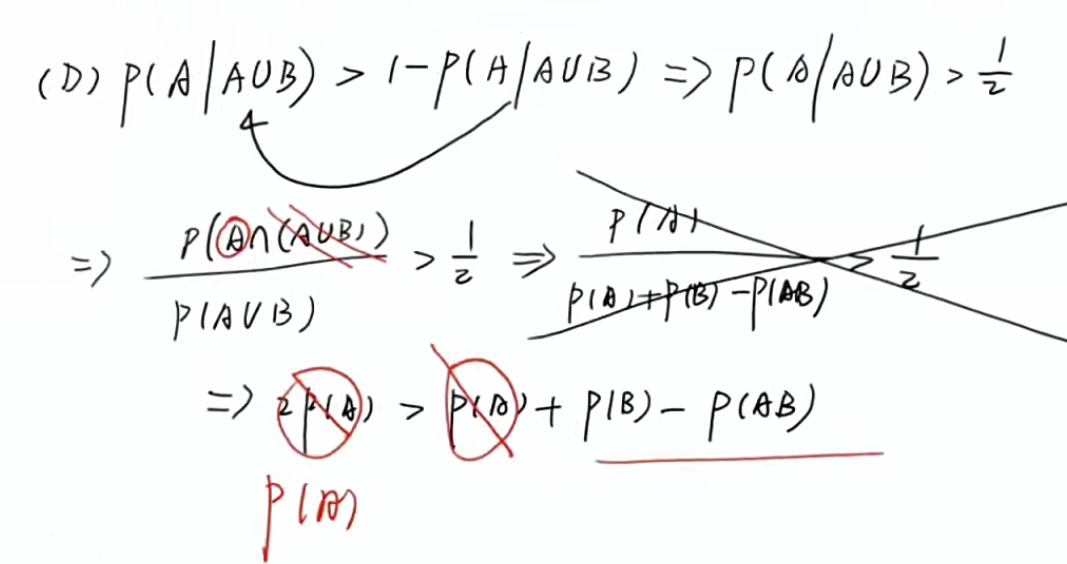 (D) P(A|A∪B) > 1-P(A|A∪B) => P(A|A∪B) > 1/2
=> P(A∩(A∪B))/P(A∪B) > 1/2 => P(A)/P(A)+P(B)-P(AB) > 1/2
=> 2P(A) > P(A) + P(B) - P(AB)
P(A)